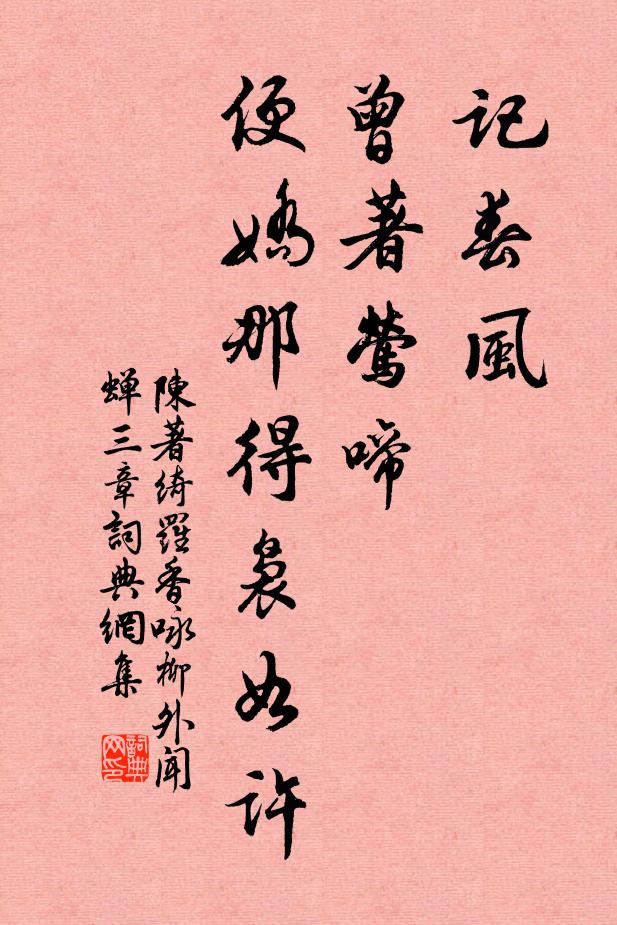 記春風
曾著鶯啼
便嬌那得裊如許
陳著綺羅香咏柳外聞
蟬三章詞典網集
詞典
网印